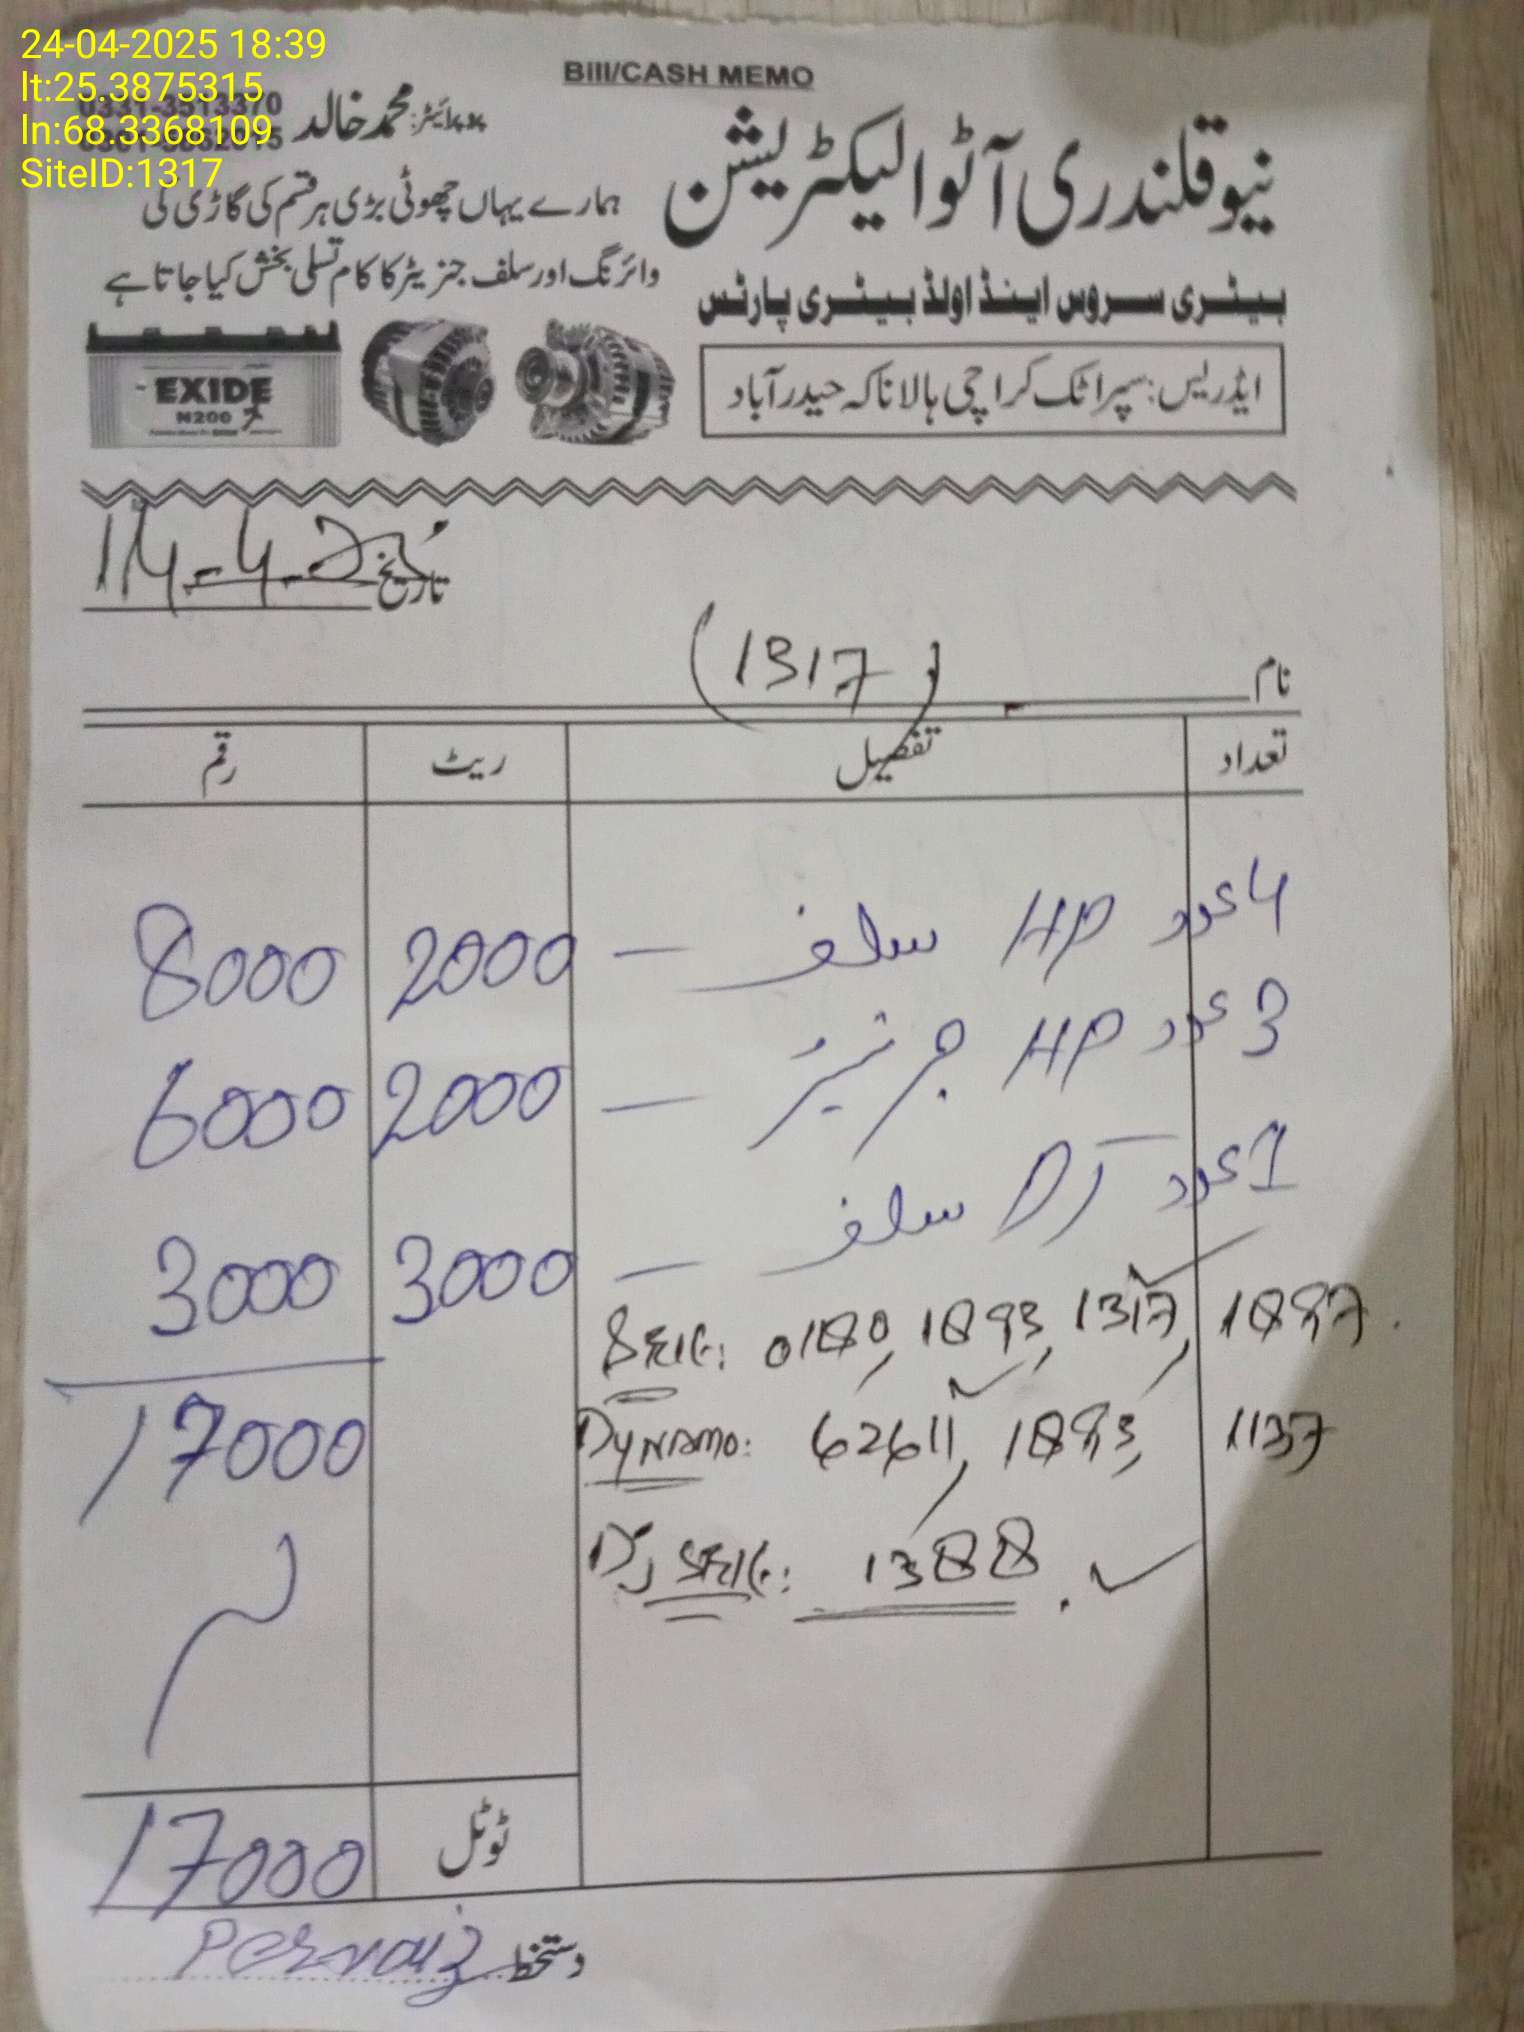 24-04-2025 18:39
lt:25.3875315
ln:68.3368109
SiteID:1317
Bill/CASH MEMO
0331-3513370
پروپرائیٹر: محمد خالد
نیو قلندری آٹو الیکٹریشن
ہمارے یہاں چھوٹی بڑی ہر قسم کی گاڑی کی
وائرنگ اور سلف جنریٹر کا کام تسلی بخش کیا جاتا ہے
بیٹری سروس اینڈ اولڈ بیٹری پارٹس
ایڈریس: سپرا ٹک کراچی بالا ناکہ حیدرآباد
EXIDE
N200
تاریخ 14-4-25
نام (1317)
تعداد تفصیل ریٹ رقم
4 عدد HP سلف — 2000 8000
3 عدد HP جرنیٹر — 2000 6000
1 عدد DJ سلف — 3000 3000
Self: 0180, 1893, 1317, 1887.
17000
Dynamo: 62611, 1883, 1137
DJ Self: 1388.
ٹوٹل 17000
دستخط Pervaiz